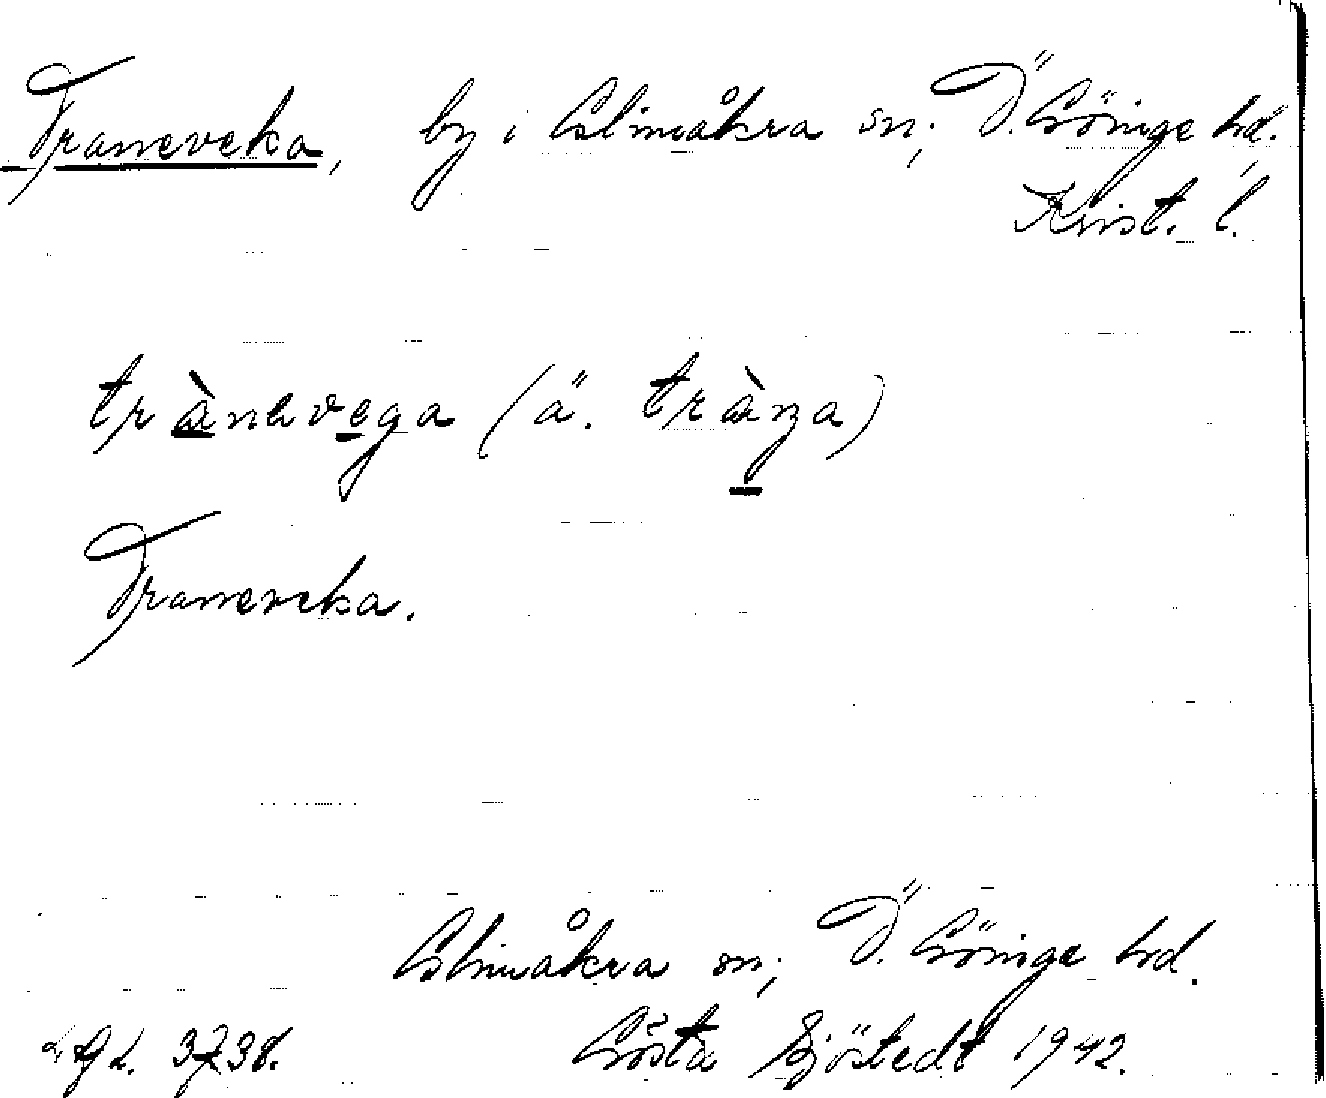 Traneveka, by i Glimåkra sn, Ö. Göinge hd.
Krist. l.
trànavega (ä. tràna)
Traneveka.
Glimåkra sn, Ö. Göinge hd.
Gösta Sjöstedt 1942.